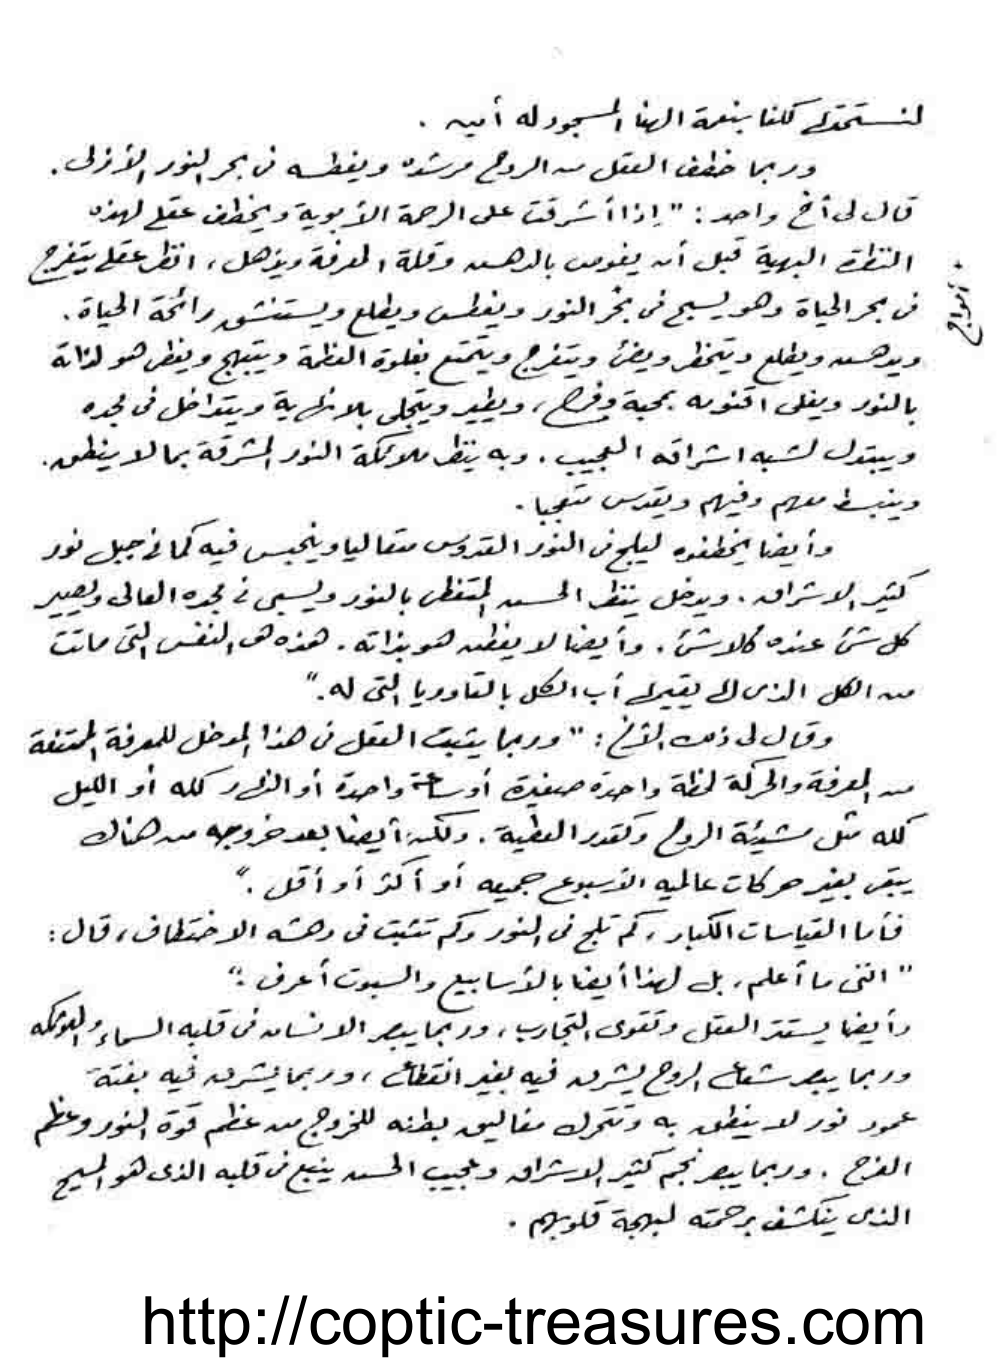 لنستحقه كلنا بنعمة الهنا المسجود له أمين .
وربما خطف العقل من الروح مرشده ويغطسه فى بحر النور الأزلى .
قال لى أخ واحد : " إذا أشرقت على الرحمة الأبوية ويخطف عقلى لهذه
النظرة البهية قبل أن يغوص بالدهش وقلة المعرفة ويذهل ، انظر عقلى يتفرج
فى بحر الحياة وهو يسبح فى بحر النور ويغطس ويطلع ويستنشق رائحة الحياة .
* أمواج
ويدهش ويطلع ويتخطر ويضئ ويتفرج ويتمتع بغلوة العظمة ويبتهج وينظر هو لذاته
بالنور ويغلى اقنومه بمحبة وفرح ، ويطير ويتجلى بالانهاية ويتداخل فى مجده
ويبتدل لشبه اشراقه العجيب . وبه ينظر ملائكة النور المشرقة بما لا ينطق .
وينبسط معهم وفيهم ويقدس متعجبا .
وأيضا يخطفوه ليلج فى النور القدوس متعاليا وينحبس فيه كما فى جبل نور
كثير الاشراق . ويدخل ينظر الحسن المتغطى بالنور ويسبى فى مجده العالى ويصير
كل شئ عنده كلا شئ . وأيضا لا يفطن هو بذاته . هذه هى النفس التى ماتت
من الكل الذى له يقيمها أب الكل بالتاوريا التى له . "
وقال لى ذلك الأخ : " وربما يثبت العقل فى هذا المدخل للمعرفة الممتنعة
من المعرفة والحركة لحظة واحدة صغيرة أو ساعة واحدة أو النهار كله أو الليل
كله مثل مشيئة الروح وكقدر العطية . ولكن أيضا بعد خروجه من هناك
يبقى بغير حركات عالمية الأسبوع جميعه أو أكثر أو أقل . "
فأما القياسات الكبار ، كم تلج فى النور وكم تثبت فى دهشه الاختطاف ، قال :
" اننى ما أعلم ، بل لهذا أيضا بالأسابيع والسبوت أعرف . "
وأيضا يستتر العقل وتقوى التجارب ، وربما يبصر الانسان فى قلبه السماء والملائكة
وربما يبصر شعاع الروح يشرق فيه بغير انقطاع ، وربما يشرق فيه بغتة
عمود نور لا ينطق به وتتحرك مغاليق بطنه للخروج من عظم قوة النور وعظم
الفرح . وربما يبصر نجم كثير الاشراق وعجيب الحسن ينبع فى قلبه الذى هو المسيح
الذى ينكشف برحمته لبهجة قلوبهم .
http://coptic-treasures.com